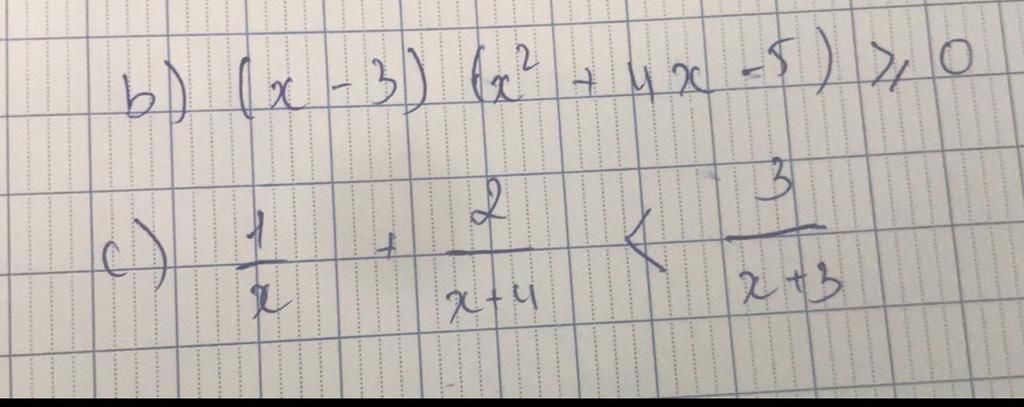 b) (x - 3) (x² + 4x - 5) ⩾ 0
c) 1/x + 2/(x+4) < 3/(x+3)